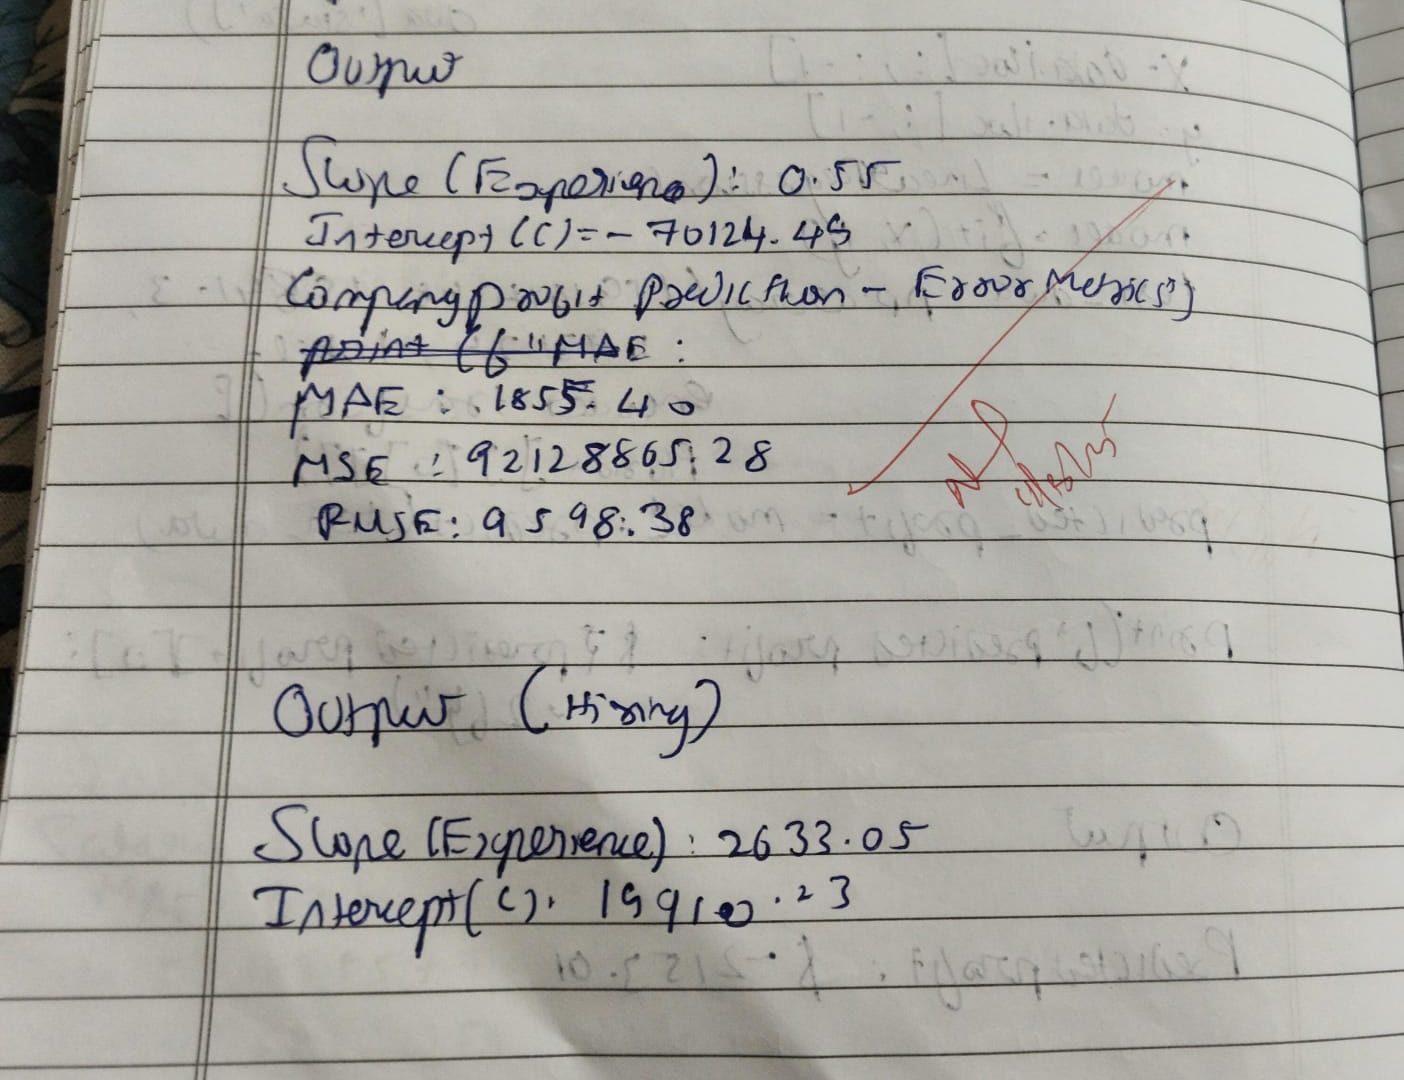 Output
Slope (Experience): 0.55
Intercept (C) = - 70124.49
Company profit Prediction - Error Metrics)
print (f "MAE :
MAE : 1855.40
MSE : 92128865.28
RMSE : 9598.38
Output (Hiring)
Slope (Experience) : 2633.05
Intercept (C). 19910.23